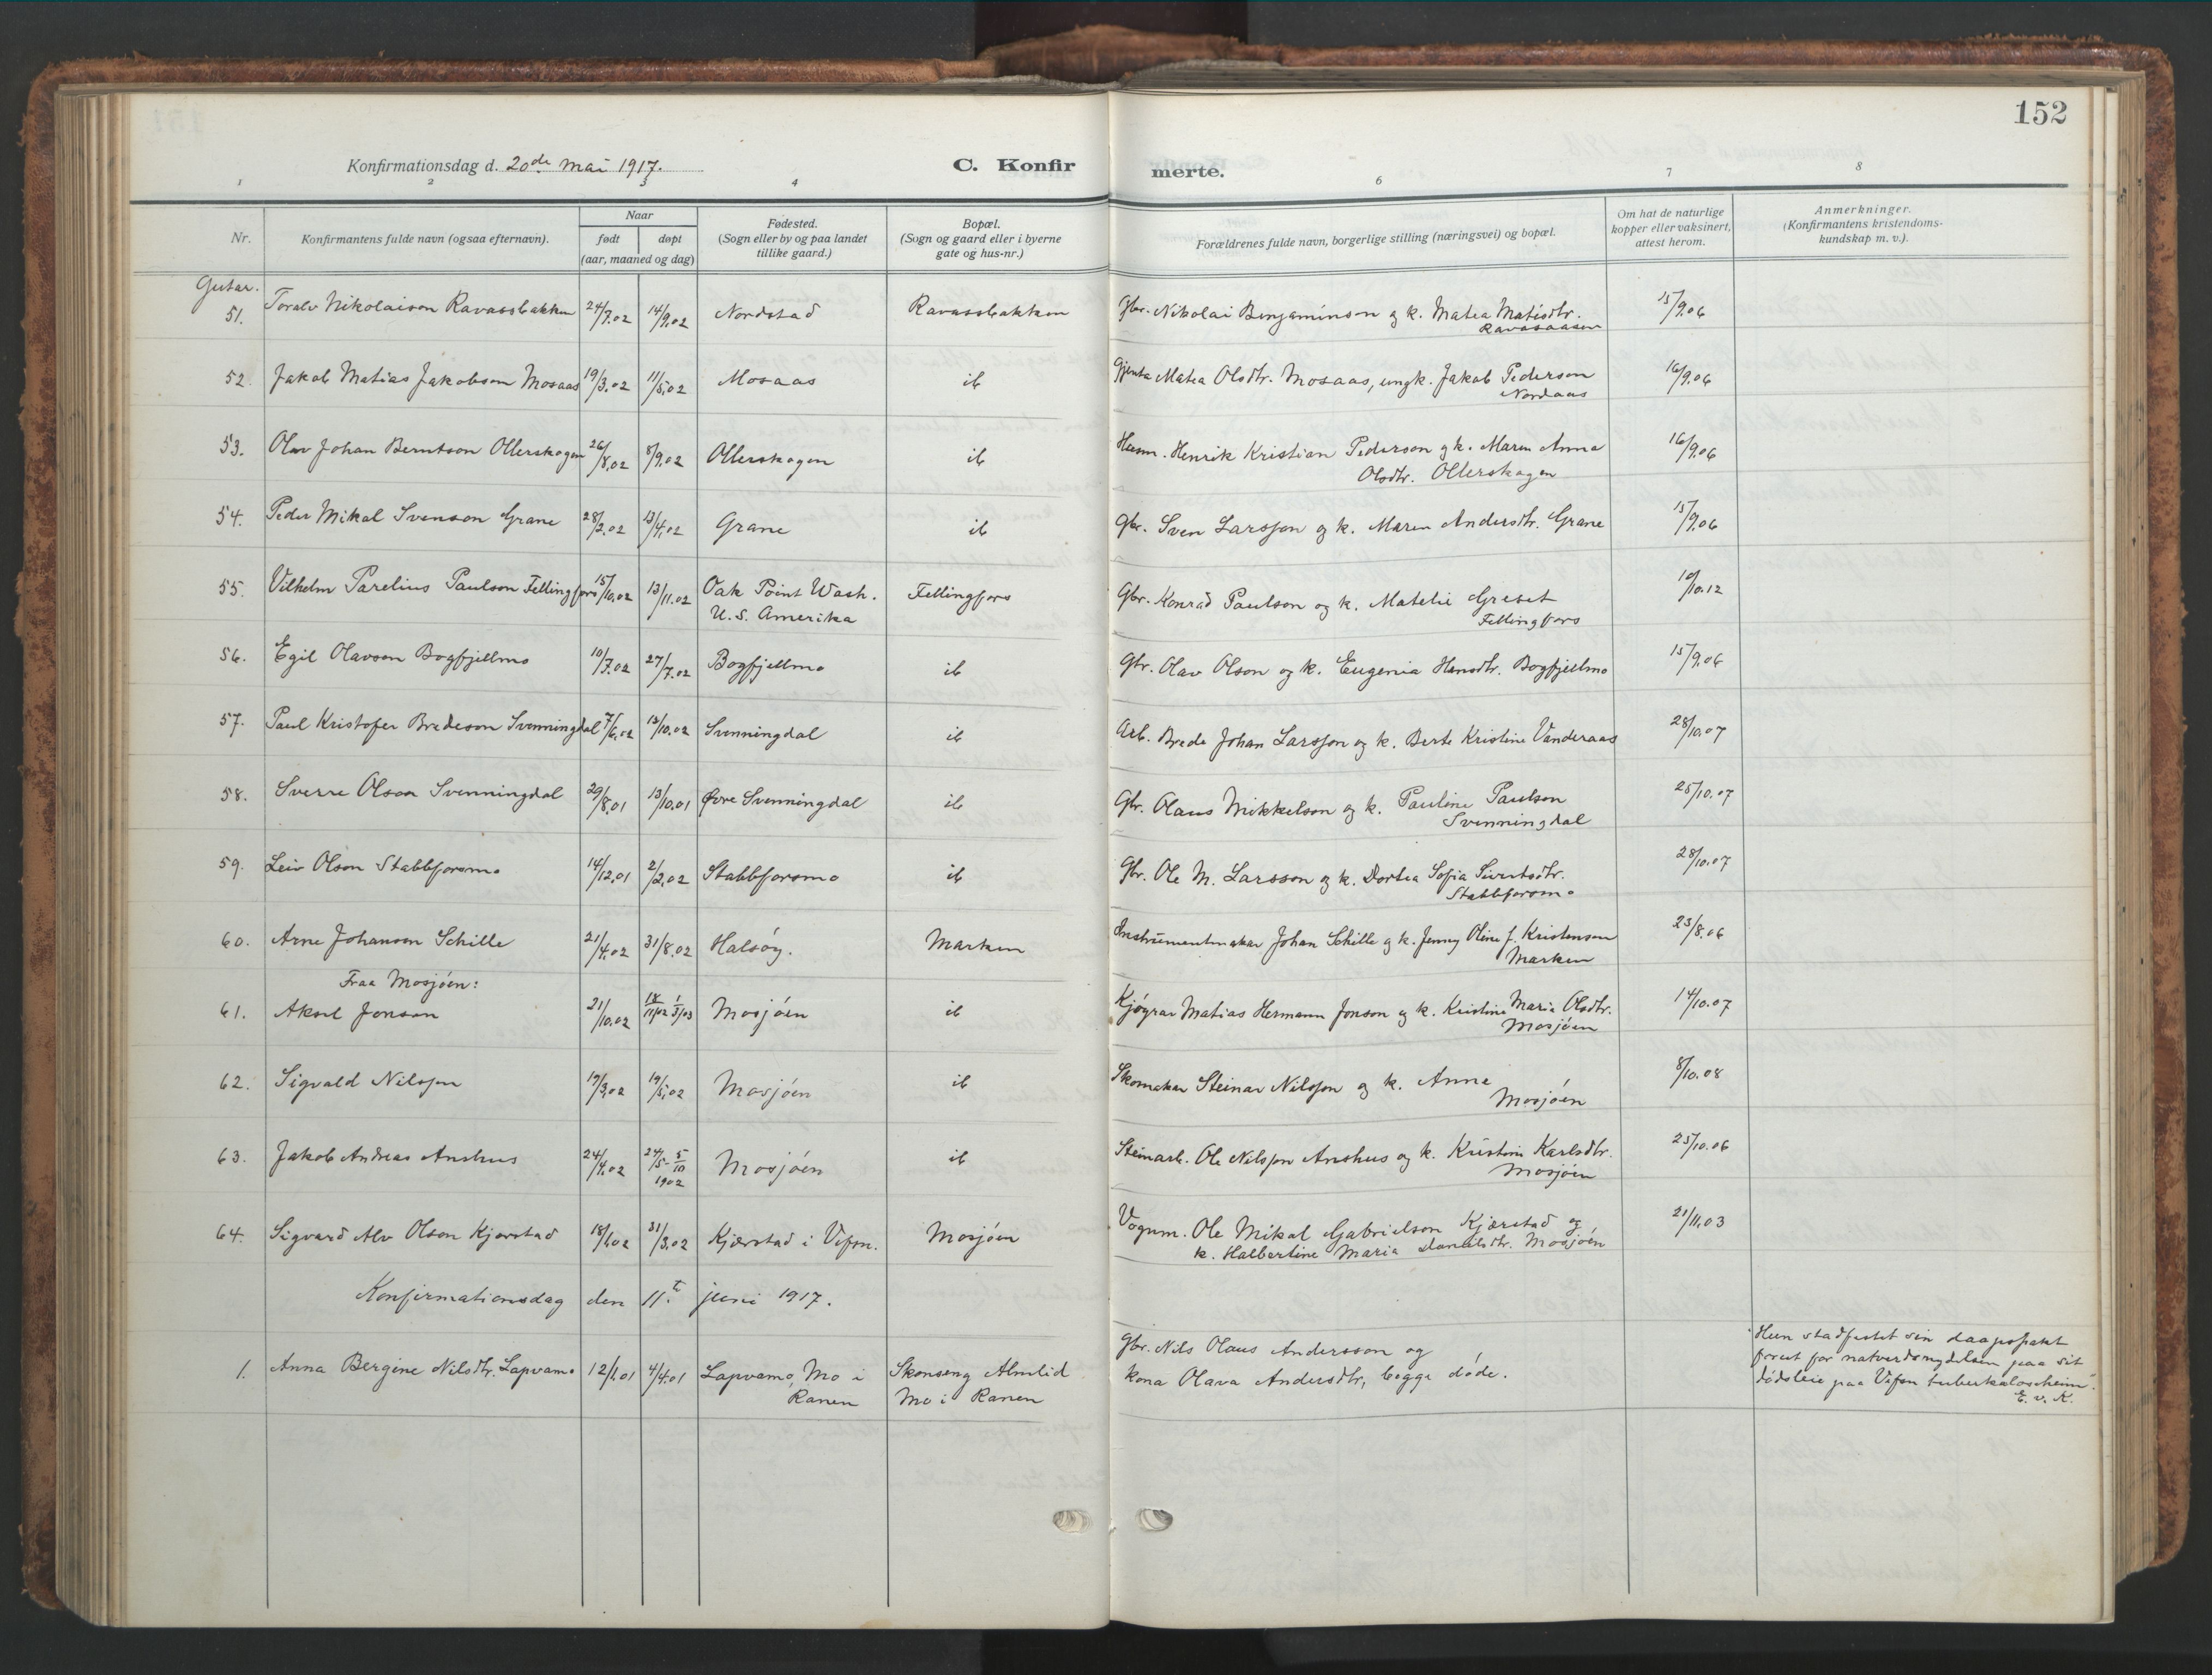 152
Konfirmationsdag d. 20de mai 1917.
C. Konfirmerte.
1 2 3 4 6 7 8
Nr.
Konfirmantens fulde navn (ogsaa efternavn).
Naar
født døpt
(aar, maaned og dag)
Fødested.
(Sogn eller by og paa landet
tillike gaard.)
Bopæl.
(Sogn og gaard eller i byerne
gate og hus-nr.)
Forældrenes fulde navn, borgerlige stilling (næringsvei) og bopæl.
Om hat de naturlige
kopper eller vaksinert,
attest herom.
Anmerkninger.
(Konfirmantens kristendoms-
kundskap m. v.).
Gutar.
51. Toralv Nikolaison Ravassbakken 24/7.02 14/9.02 Nordstad Ravassbakken Gbr. Nikolai Benjaminson og k. Matea Matisdtr. 15/9.06
Ravasaasen
52. Jakob Matias Jakobson Mosaas 19/3.02 11/5.02 Mosaas ib Gjenta Matea Olsdtr. Mosaas, ungk. Jakob Pederson 16/9.06
Nordaas
53. Olav Johan Berntson Ollerskogen 26/8.02 8/9.02 Ollerskogen ib Husm. Henrik Kristian Pederson og k. Maren Anna 16/9.06
Olsdtr. Ollerskogen
54. Peder Mikal Svenson Grane 28/2.02 13/4.02 Grane ib Gbr. Sven Larsson og k. Maren Andersdtr. Grane 15/9.06
55. Vilhelm Parelius Paulson Fellingfors 15/10.02 13/11.02 Oak Point Wash. Fellingfors Gbr. Konrad Paulson og k. Matelie Greset 10/10.12
U. S. Amerika Fellingfors
56. Egil Olavson Bogfjellmo 10/7.02 27/7.02 Bogfjellmo ib Gbr. Olav Olson og k. Eugenia Hansdtr. Bogfjellmo 15/9.06
57. Paul Kristofer Bredeson Svenningdal 7/6.02 12/10.02 Svenningdal ib Arb. Brede Johan Larsson og k. Berte Kristine Vanderaas 28/10.07
58. Sverre Olson Svenningdal 29/8.01 13/10.01 Øvre Svenningdal ib Gbr. Olaus Mikkelson og k. Pauline Paulson 25/10.07
Svenningdal
59. Leiv Olson Stabbforsmo 14/12.01 2/2.02 Stabbforsmo ib Gbr. Ole M. Larsson og k. Dortea Sofia Sivertsdtr. 28/10.07
Stabbforsmo
60. Arne Johanson Schille 21/4.02 31/8.02 Halsøy. Marken Instrumentmakar Johan Schille og k. Jenny Oline f. Kristenson 23/8.06
Marken
Fraa Mosjøen:
61. Aksel Jonson 21/10.02 18/11/02 1/3/03 Mosjøen ib Kjøyrar Matias Hermann Jonson og k. Kristine Maria Olsdtr. 14/10.07
Mosjøen
62. Sigvald Nilsson 19/3.02 19/5.02 Mosjøen ib Skomakar Steinar Nilsson og k. Anne 8/10.08
Mosjøen
63. Jakob Andreas Anshus 24/4.02 24/5 - 5/10 1902 Mosjøen ib Steinarb. Ole Nilsson Anshus og k. Kristine Karlsdtr. 25/10.06
Mosjøen
64. Sigvard Alv Olson Kjærstad 18/1.02 31/3.02 Kjærstad i Vefsn. Mosjøen Vognm. Ole Mikal Gabrielson Kjærstad og 21/11.03
k. Halbertine Maria Danielsdtr. Mosjøen
Konfirmationsdag den 11.t juni 1917.
1. Anna Bergine Nilsdtr. Lapvamo 12/1.01 4/4.01 Lapvamo, Mo i Skonseng Almlid Gbr. Nils Olaus Andersson og
Ranen Mo i Ranen kona Olava Andersdtr, begge døde.
Hun stadfestet sin daapspakt
forut for natverdsnydelsen paa sit
dødsleie paa Vefsn tuberkuloseheim.
E. v. K.